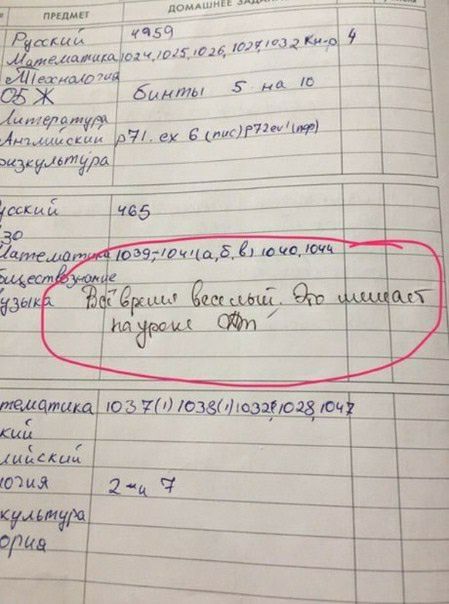 ПРЕДМЕТ ДОМАШНЕЕ
Русский 4959
Математика 1024, 1025, 1026, 1027, 1032 Кн-р 4
Технология
ОБЖ бинты 5 на 10
Литература
Английский р71. ex 6 (пис) р72
изкультура
усский 465
зо
Математика 1039, 1041 (а, б, в) 1040, 1044
бществознание
узыка Всё время веселый. Это мешает
на уроке
тематика 1037(1) 1038(1) 1032 1028, 1047
кий
лийский
логия 2-и 7
культура
ория